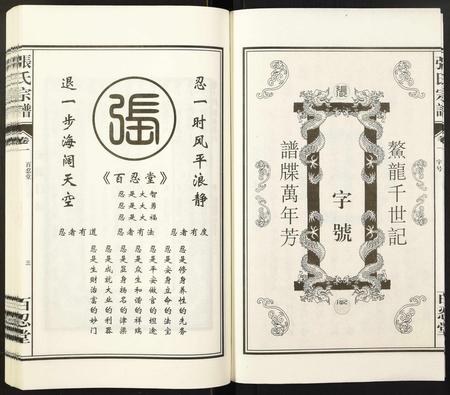 張氏宗譜
卷一
字号
百忍堂
張
鰲龍千世記
字號
譜牒萬年芳
忍一时风平浪静
張
《百忍堂》
忍是大智
忍是大勇
忍是大福
忍者有度
忍者有法
忍者有道
忍是修身养性的先务
忍是安身立命的法宝
忍是平安做官的坦途
忍是众生和谐的祥瑞
忍是显身扬名的津梁
忍是成就大业的利器
忍是生财治富的妙门
退一步海阔天空
張氏宗譜
卷一
百忍堂
三
百忍堂